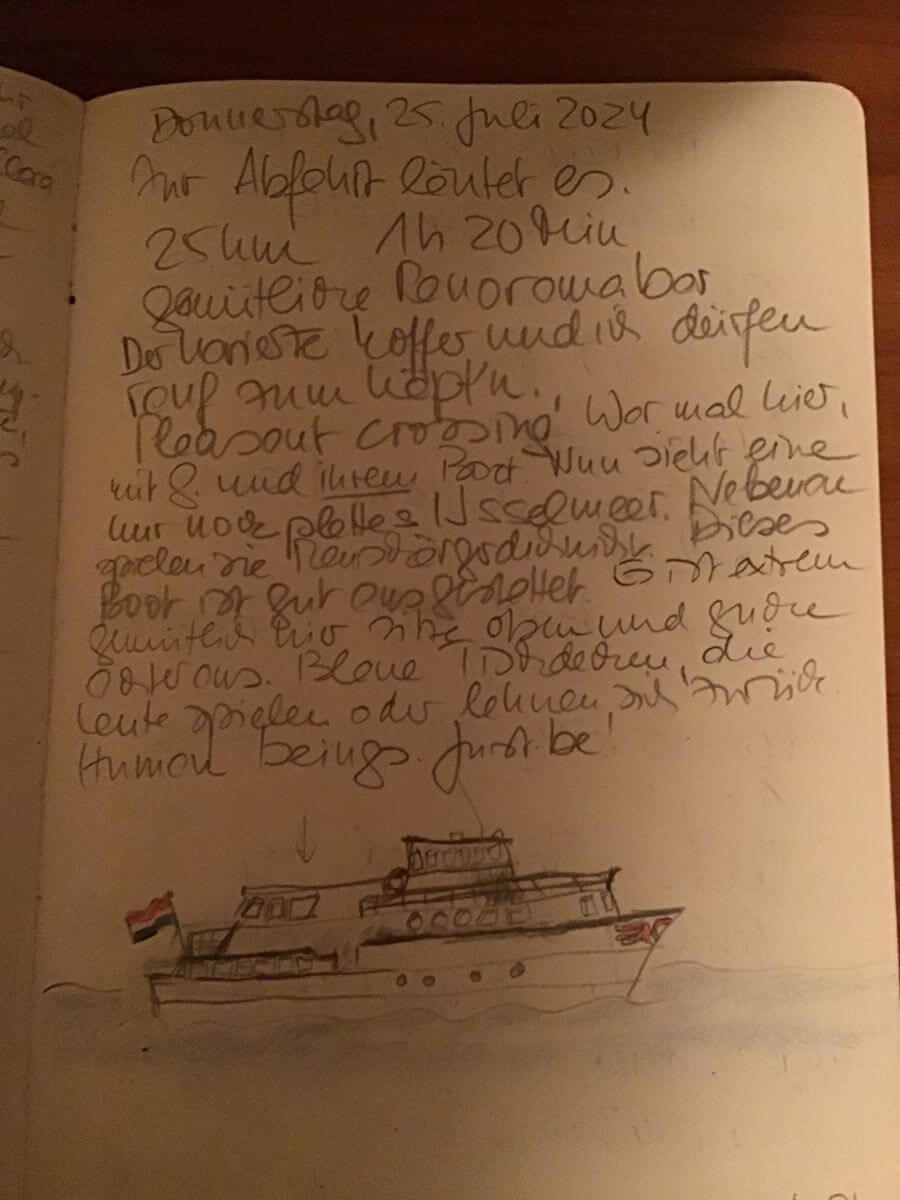 Donnerstag, 25. Juli 2024
Zur Abfahrt läutet es.
25km 1h 20 Min
gemütliche Panoramabar
Der karierte Koffer und ich dürfen
rauf zum Käpt'n.
Pleasant crossing! War mal hier,
mit G. und ihrem Boot. Nun sieht eine
nur noch plattes IJsselmeer. Nebenan
spielen sie. Dieses
Boot ist gut ausgestattet. Es ist extrem
gemütlich hier. Sitze oben und gucke
raus. Blaue die
Leute spielen oder lehnen sich zurück.
Human beings. Just be!